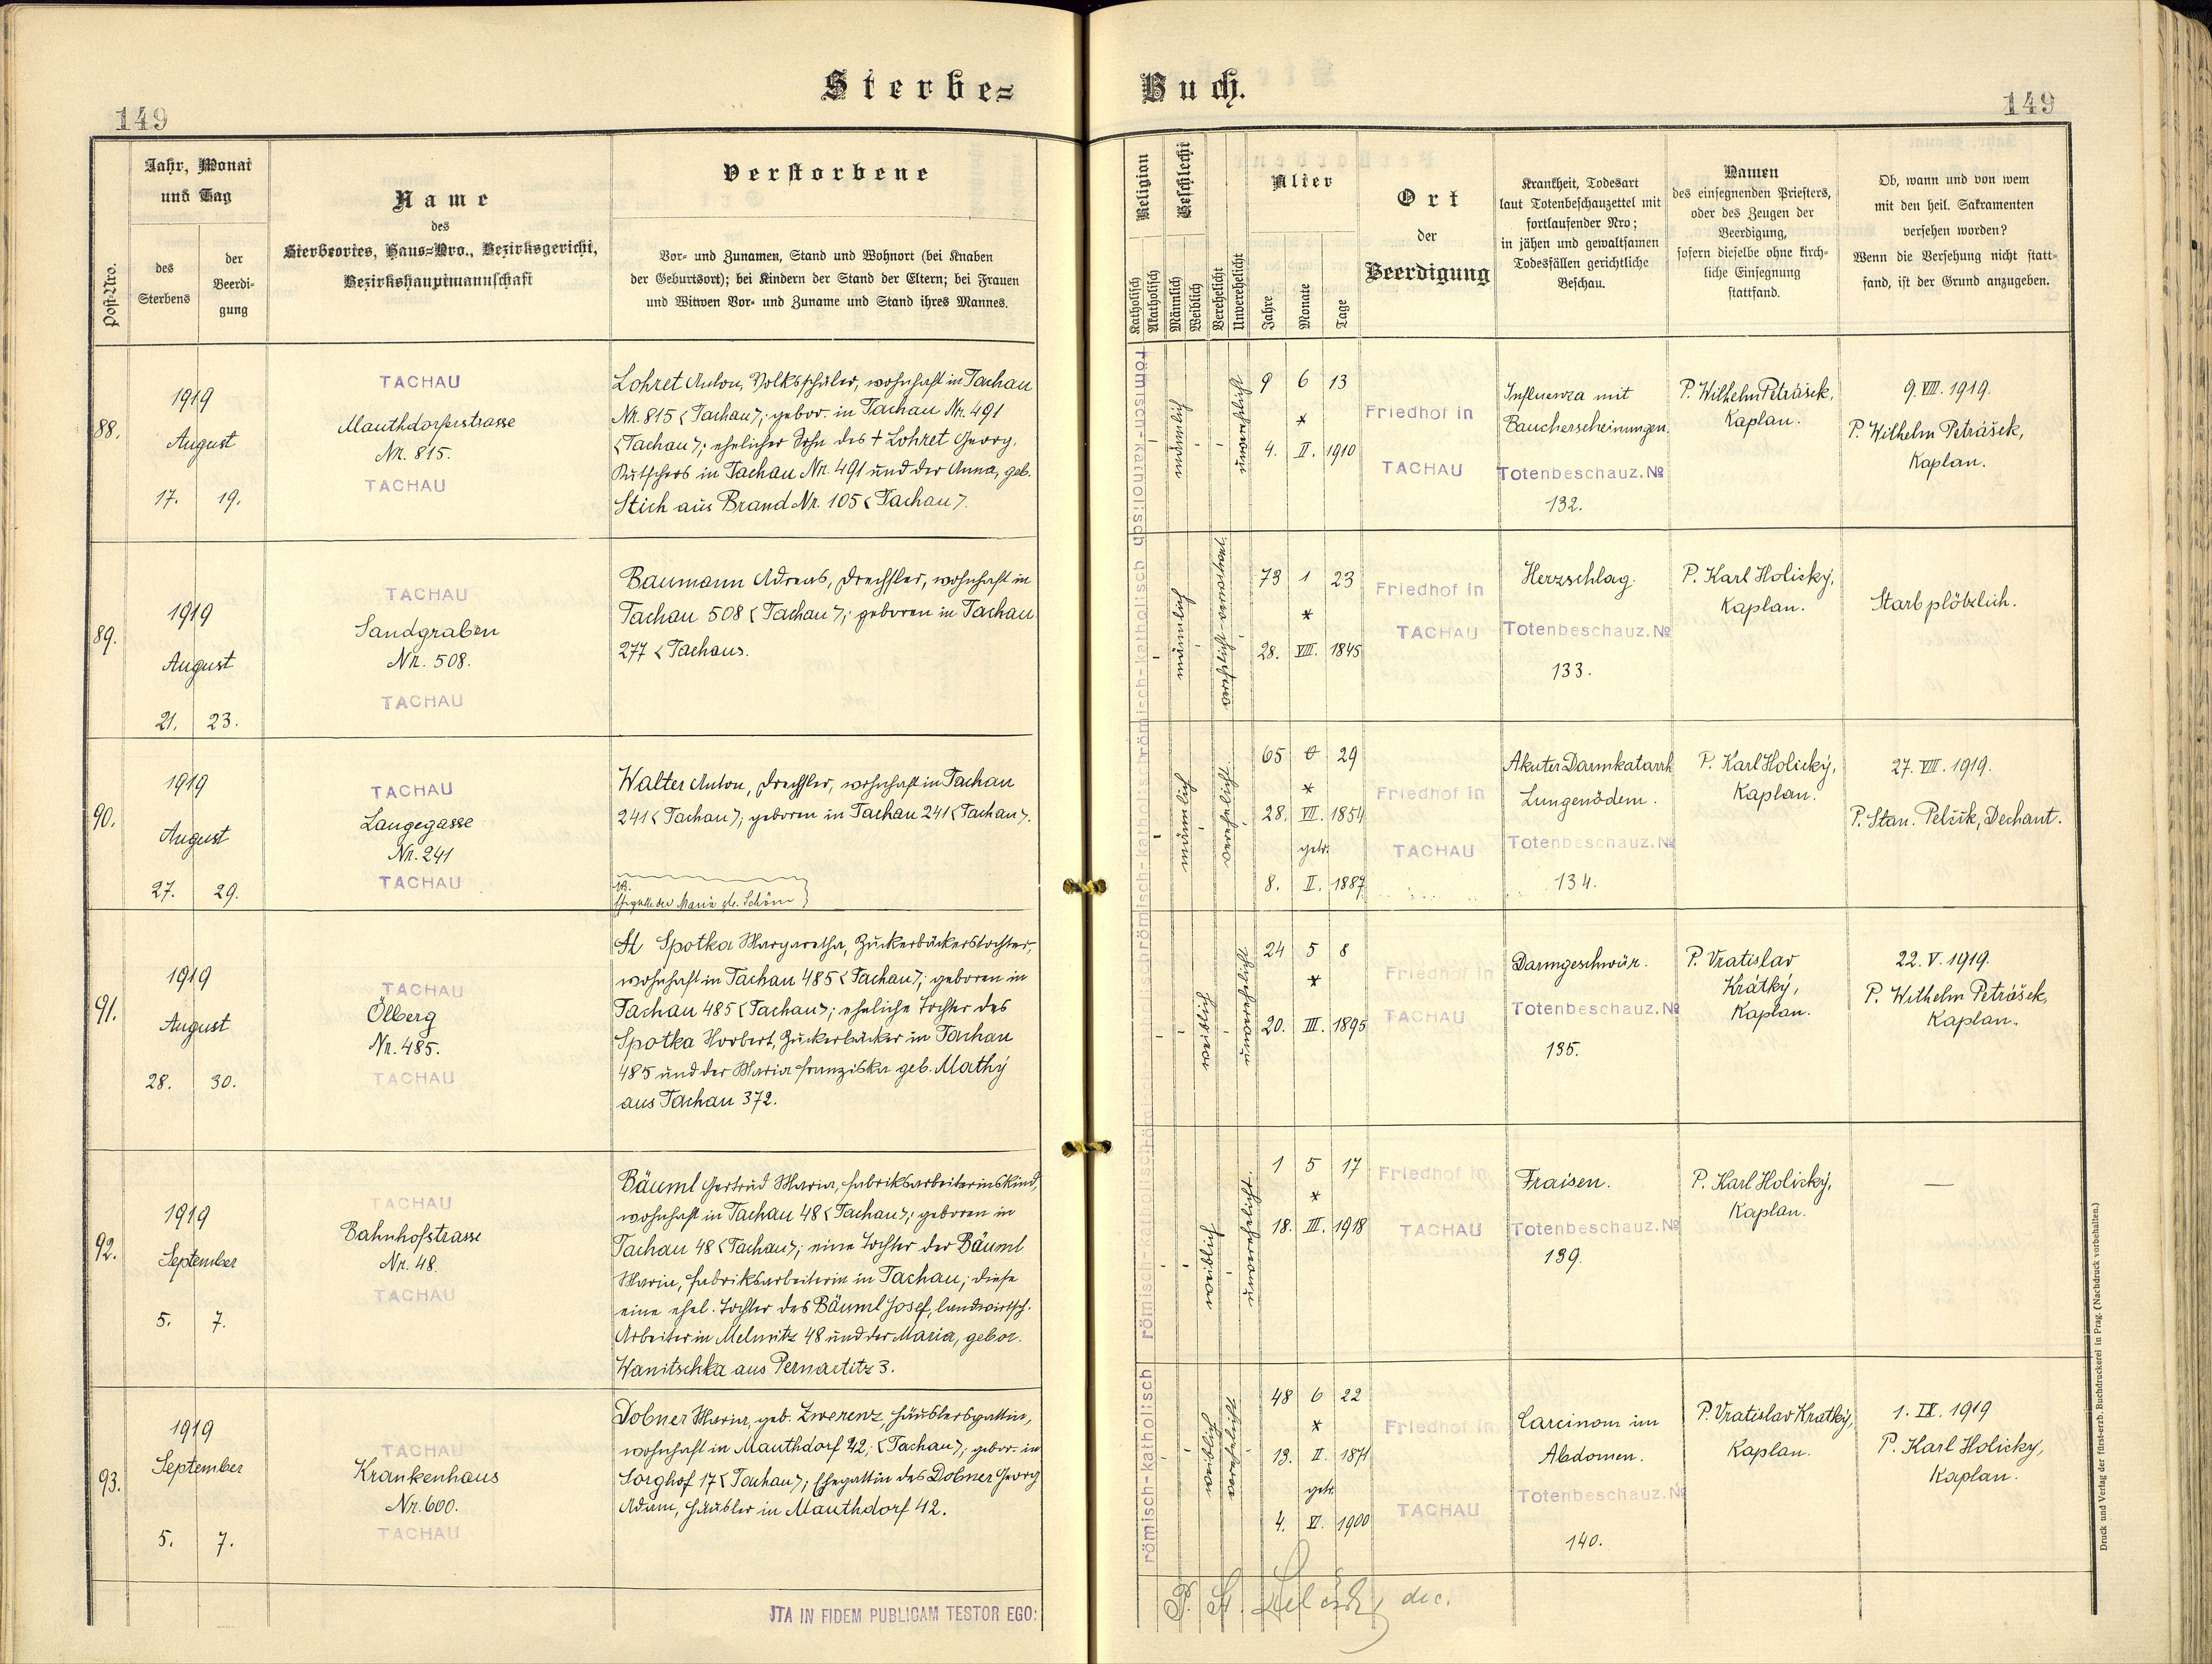 149
Sterbe=
Buch.
149
Post-Nro.
Jahr, Monat
und Tag
des
Sterbens
der
Beerdi-
gung
Name
des
Sterbeortes, Haus=Nro., Bezirksgericht,
Bezirkshauptmannschaft
Verstorbene
Vor- und Zunamen, Stand und Wohnort (bei Knaben
der Geburtsort); bei Kindern der Stand der Eltern; bei Frauen
und Witwen Vor- und Zuname und Stand ihres Mannes.
Religion
Katholisch
Akatholisch
Geschlecht
Männlich
Weiblich
Verehelicht
Unverehelicht
Alter
Jahre
Monate
Tage
Ort
der
Beerdigung
Krankheit, Todesart
laut Totenbeschauzettel mit
fortlaufender Nro;
in jähen und gewaltsamen
Todesfällen gerichtliche
Beschau.
Namen
des einsegnenden Priesters,
oder des Zeugen der
Beerdigung,
sofern dieselbe ohne kirch-
liche Einsegnung
stattfand.
Ob, wann und von wem
mit den heil. Sakramenten
versehen worden?
Wenn die Versehung nicht statt-
fand, ist der Grund anzugeben.
88.
1919
August
17. 19.
TACHAU
Mauthdorferstrasse
Nr. 815.
TACHAU
Lohret Anton, Volksschüler, wohnhaft in Tachau
Nr. 815 <Tachau>; gebor. in Tachau Nr. 491
<Tachau>; ehelicher Sohn des + Lohret Georg,
Kutschers in Tachau Nr. 491 und der Anna, geb.
Stich aus Brand Nr. 105 <Tachau>.
römisch-katholisch
männlich
unverehelicht
9 6 13
*
4. II. 1910
Friedhof in
TACHAU
Influenza mit
Baucherscheinungen.
Totenbeschauz. No
132.
P. Wilhelm Petrášek,
Kaplan.
9. VIII. 1919.
P. Wilhelm Petrášek,
Kaplan.
89.
1919
August
21. 23.
TACHAU
Sandgraben
Nr. 508.
TACHAU
Baumann Adreas, Drechsler, wohnhaft in
Tachau 508 <Tachau>; geboren in Tachau
277 <Tachau>.
römisch-katholisch
männlich
verehelicht-verwitwet.
73 1 23
*
28. VIII. 1845
Friedhof in
TACHAU
Herzschlag.
Totenbeschauz. No
133.
P. Karl Holický,
Kaplan.
Starb plötzlich.
90.
1919
August
27. 29.
TACHAU
Langegasse
Nr. 241
TACHAU
Walter Anton, Drechsler, wohnhaft in Tachau
241 <Tachau>; geboren in Tachau 241 <Tachau>.
NB.
Ehegatte der Maria gb. Schön
römisch-katholisch
männlich
verehelicht.
65 0 29
*
28. VII. 1854
getr.
8. II. 1887
Friedhof in
TACHAU
Akuter Darmkatarrh
Lungenödem.
Totenbeschauz. No
134.
P. Karl Holický,
Kaplan.
27. VIII. 1919.
P. Stan. Pelčík, Dechant.
91.
1919
August
28. 30.
TACHAU
Ölberg
Nr. 485.
TACHAU
Spotka Margaretha, Zuckerbäckerstochter,
wohnhaft in Tachau 485 <Tachau>; geboren in
Tachau 485 <Tachau>; eheliche Tochter des
Spotka Norbert, Zuckerbäcker in Tachau
485 und der Maria Franziska geb. Mathÿ
aus Tachau 372.
weiblich
unverehelicht
24 5 8
*
20. III. 1895
Friedhof in
TACHAU
Darmgeschwür.
Totenbeschauz. No
135.
P. Vratislav
Krátký,
Kaplan.
22. V. 1919.
P. Wilhelm Petrášek,
Kaplan.
92.
1919
September
5. 7.
TACHAU
Bahnhofstrasse
Nr. 48.
TACHAU
Bäuml Gertrud Maria, Fabriksarbeiterinskind,
wohnhaft in Tachau 48 <Tachau>; geboren in
Tachau 48 <Tachau>; eine Tochter der Bäuml
Maria, Fabriksarbeiterin in Tachau; diese
eine ehel. Tochter des Bäuml Josef, landwirtsch.
Arbeiter in Melmitz 48 und der Maria, gebor.
Wanitschka aus Pernartitz 3.
römisch-katholisch
weiblich
unverehelicht.
1 5 17
*
18. III. 1918
Friedhof in
TACHAU
Fraisen.
Totenbeschauz. No
139.
P. Karl Holický,
Kaplan.
—
93.
1919
September
5. 7.
TACHAU
Krankenhaus
Nr. 600.
TACHAU
Dobner Maria, geb. Zwerenz, Häuslersgattin,
wohnhaft in Mauthdorf 42, <Tachau>; gebor. in
Sorghof 17 <Tachau>; Ehegattin des Dobner Georg
Adam, Häusler in Mauthdorf 42.
römisch-katholisch
weiblich
verehelicht
48 6 22
*
13. II. 1871
getr.
4. VI. 1900
Friedhof in
TACHAU
Carcinom im
Abdomen.
Totenbeschauz. No
140.
P. Vratislav Krátký,
Kaplan.
1. IX. 1919
P. Karl Holický,
Kaplan.
JTA IN FIDEM PUBLICAM TESTOR EGO:
P. St. Pelčík, dec.
Druck und Verlag der fürst-erzb. Buchdruckerei in Prag. (Nachdruck vorbehalten.)